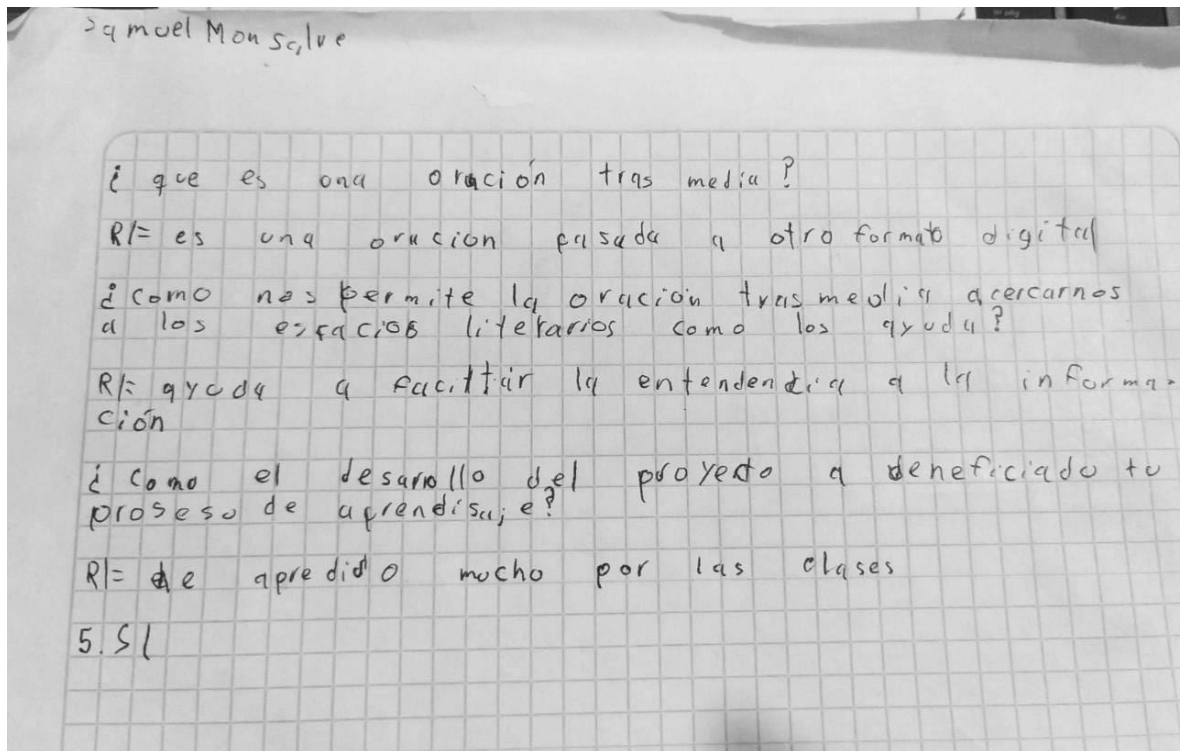 Samuel Monsalve
¿ que es una oración tras media?
R/= es una oracion pasada a otro formato digital
¿ como nos permite la oración tras media acercarnos
a los espacios literarios como los ayuda?
R/= ayuda a facilitar la entendencia a la informa-
ción
¿ Como el desarrollo del proyecto a beneficiado tu
proseso de aprendisaje?
R/= He apredido mucho por las clases
5. SI